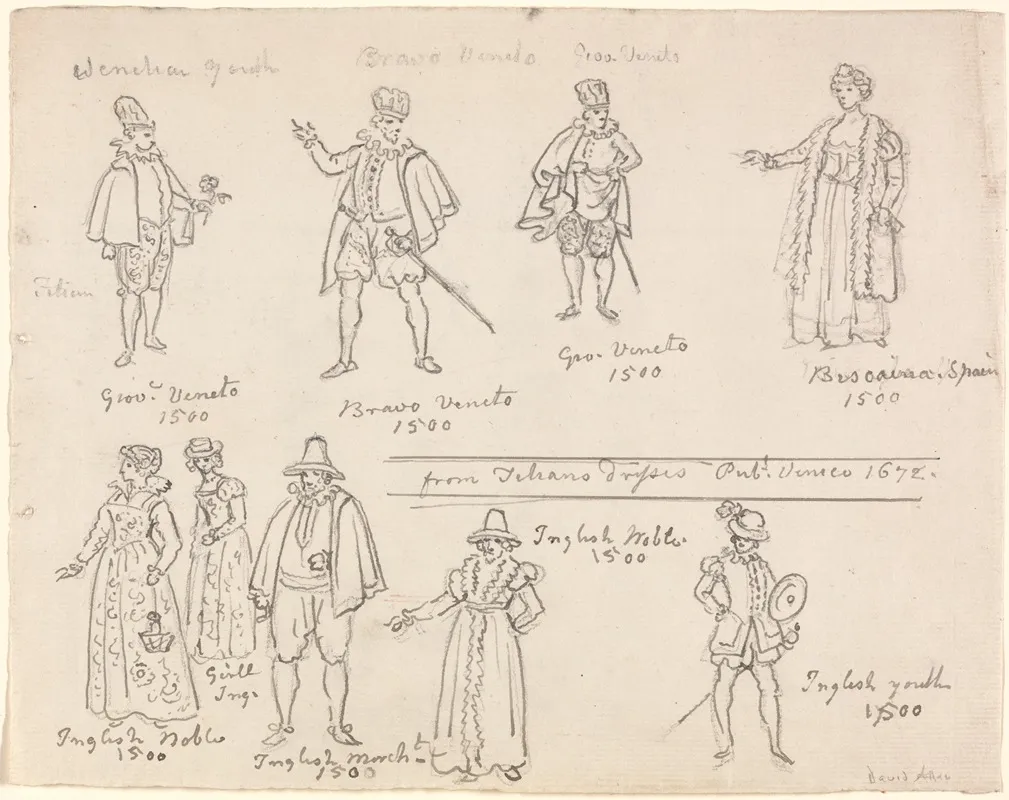 Venetian youth
Bravo Veneto
Giov. Veneto
Titian
Giov.e Veneto
1500
Bravo Veneto
1500
Gio. Veneto
1500
Biscaina. Spain
1500
from Titians drisses Pub.t Venice 1672.
Inglish Noble
1500
Girll
Ing.
Inglish March.t
1500
Inglish Noble.
1500
Inglish youth
1500
David Allan